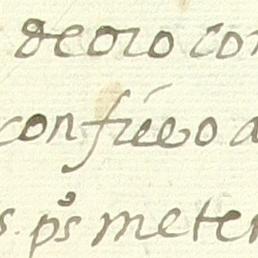 de oro con
con fuego a
s. pºs meter